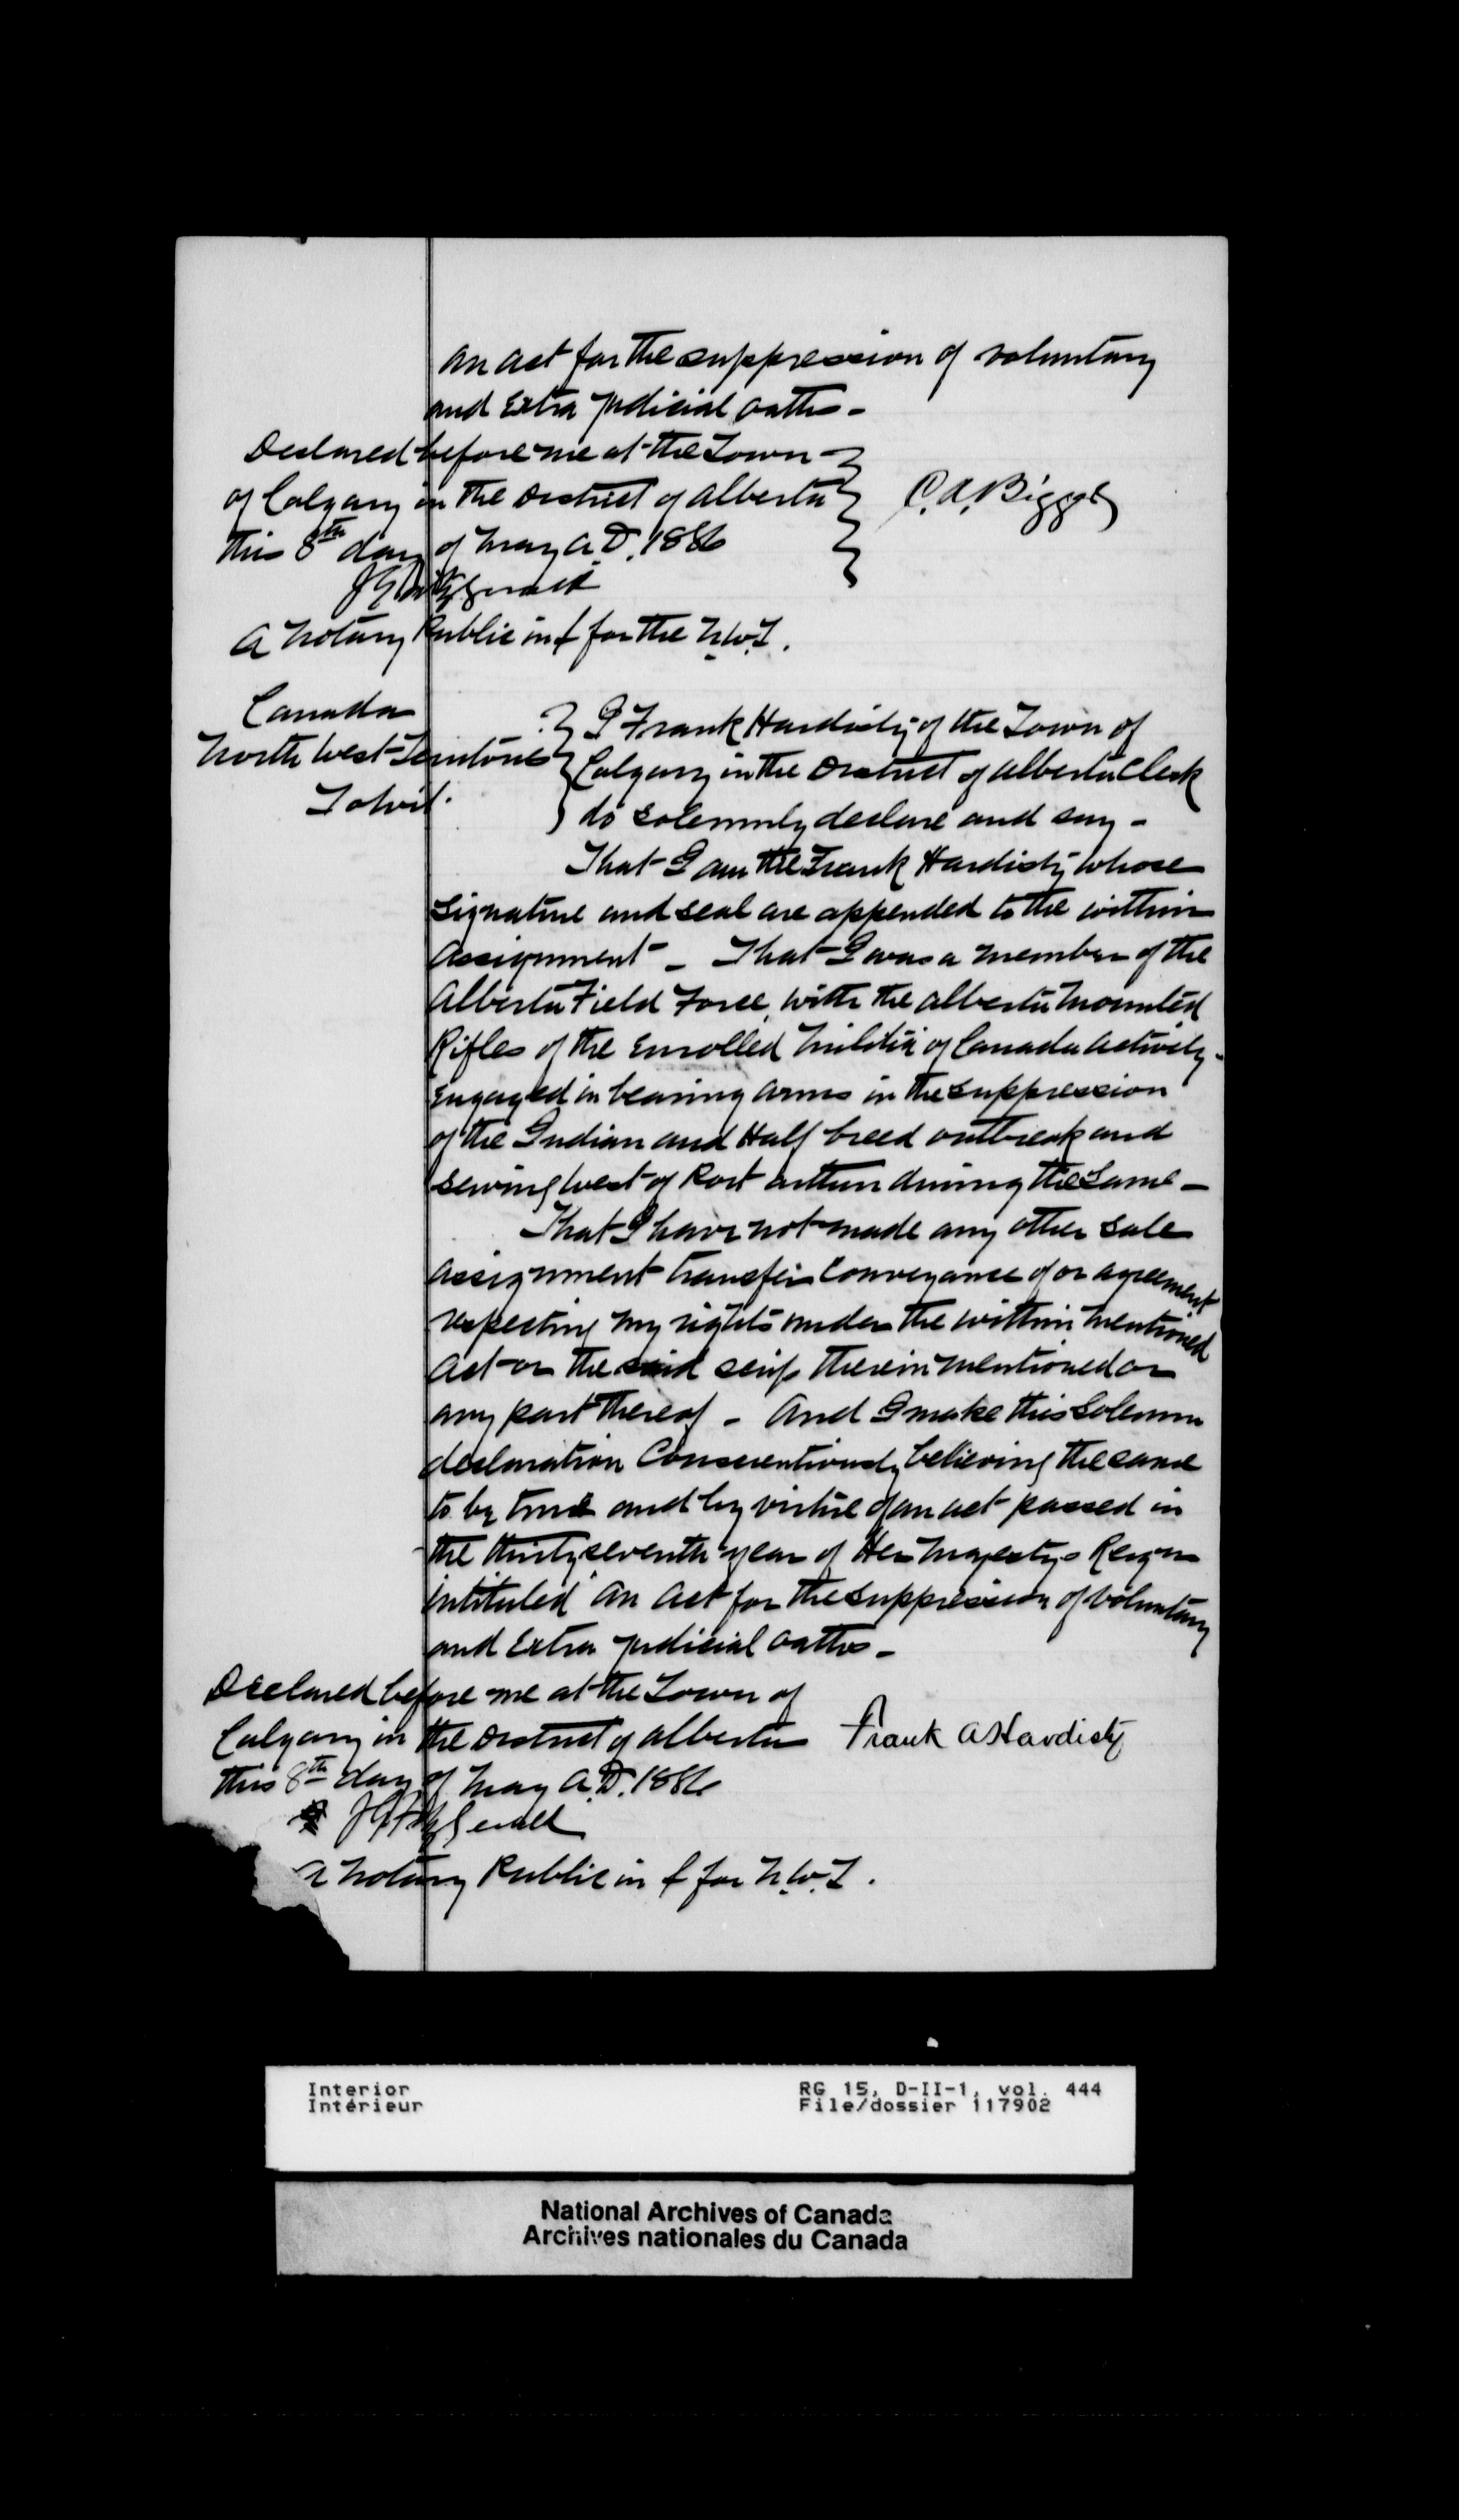 An Act for the suppression of voluntary
and Extra judicial oaths -
Declared before me at the Town
of Calgary in the District of Alberta
this 8th day of May A.D. 1886
C. A. Biggs
J G Fitzgerald
A Notary Public in & for the N.W.T.
Canada
North West Territories
To wit.
I Frank Hardisty of the Town of
Calgary in the District of Alberta Clerk
do solemnly declare and say -
That I am the Frank Hardisty whose
signature and seal are appended to the within
assignment - That I was a member of the
Alberta Field Force, with the Alberta Mounted
Rifles of the Enrolled Militia of Canada actively
Engaged in bearing arms in the suppression
of the Indian and Half breed outbreak and
serving West of Port Arthur during the same -
That I have not made any other sale
assignment transfer conveyance of or agreement
respecting my rights under the within mentioned
act or the said scrip therein mentioned or
any part thereof - And I make this solemn
declaration Conscientiously believing the same
to be true and by virtue of an act passed in
the thirty seventh year of Her Majestys Reign
intituled An Act for the suppression of voluntary
and Extra judicial oaths -
Declared before me at the Town of
Calgary in the District of Alberta
this 8th day of May A.D. 1886
Frank A Hardisty
J G Fitzgerald
A Notary Public in & for N.W.T.
Interior
Intérieur
RG 15, D-II-1, vol. 444
File/dossier 117902
National Archives of Canada
Archives nationales du Canada